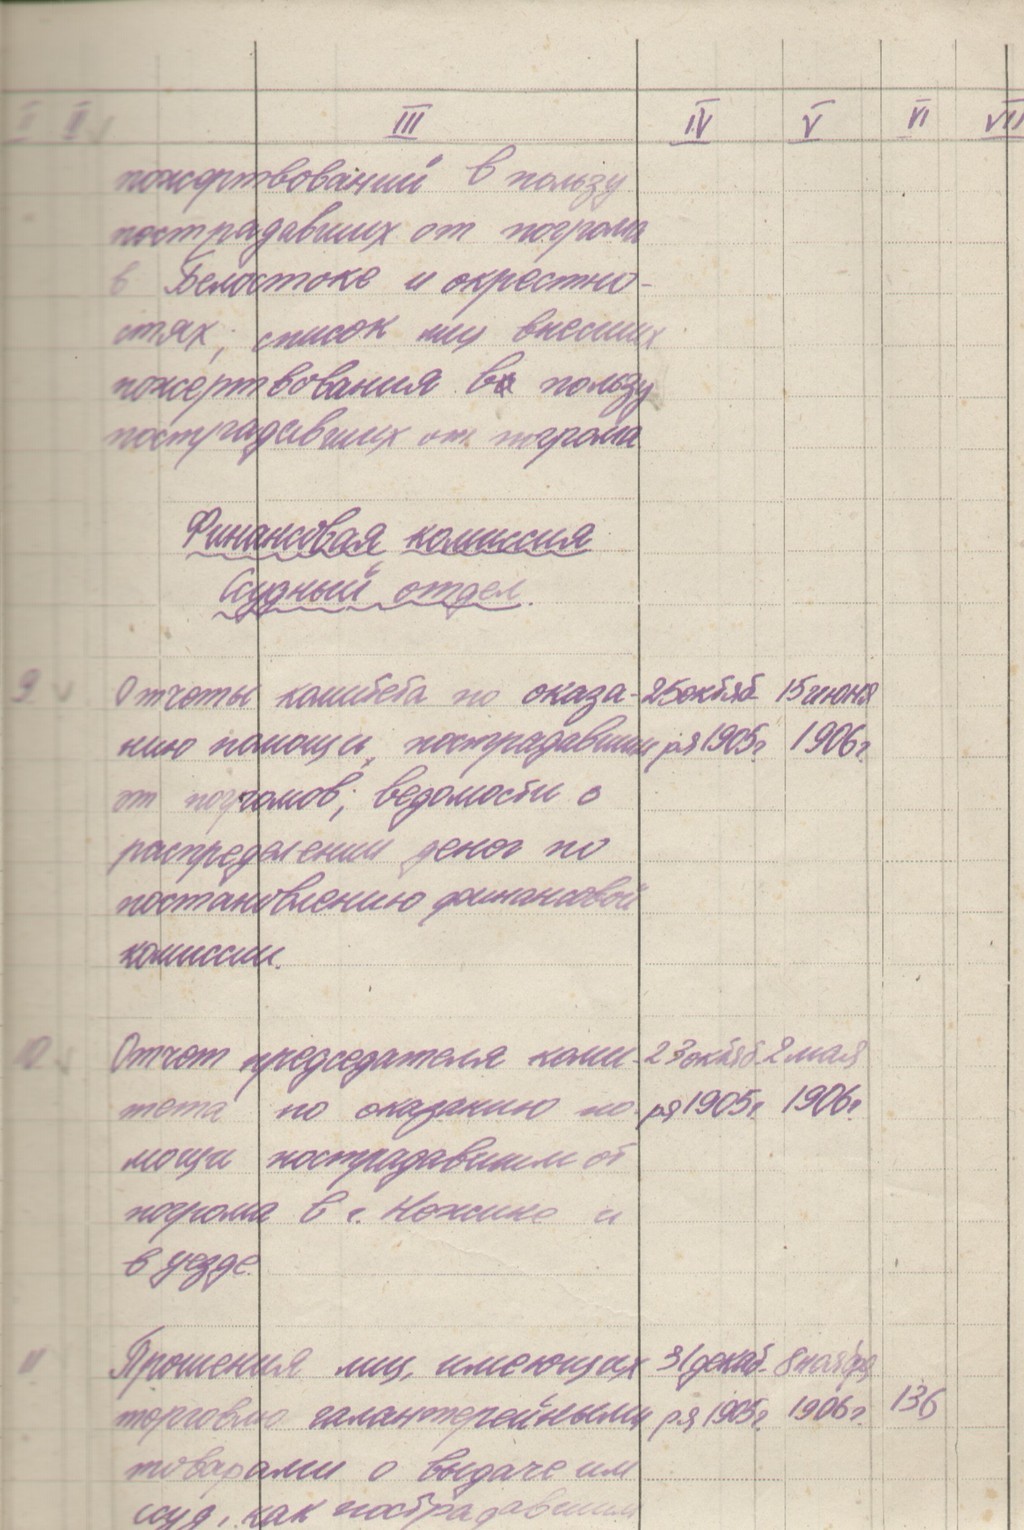 I II III IV V VI VII
пожертвований в пользу
пострадавших от погрома
в Белостоке и окрестно-
стях; список лиц внесших
пожертвования в пользу
пострадавших от погрома
Финансовая комиссия
Ссудный отдел.
9 Отчеты комитета по оказа- 25 октяб- 15 июня
нию помощи, пострадавшим ря 1905 г. 1906 г.
от погромов; ведомости о
распределении денег по
постановлению финансовой
комиссии.
10 Отчет председателя коми- 23 октяб- 2 мая
тета по оказанию по- ря 1905 г. 1906 г.
мощи пострадавшим от
погрома в г. Нежине и
в уезде.
11 Прошения лиц, имеющих 31 декаб- 8 ноября
торговлю галантерейными ря 1905 г. 1906 г. 136
товарами о выдаче им
ссуд, как пострадавшим